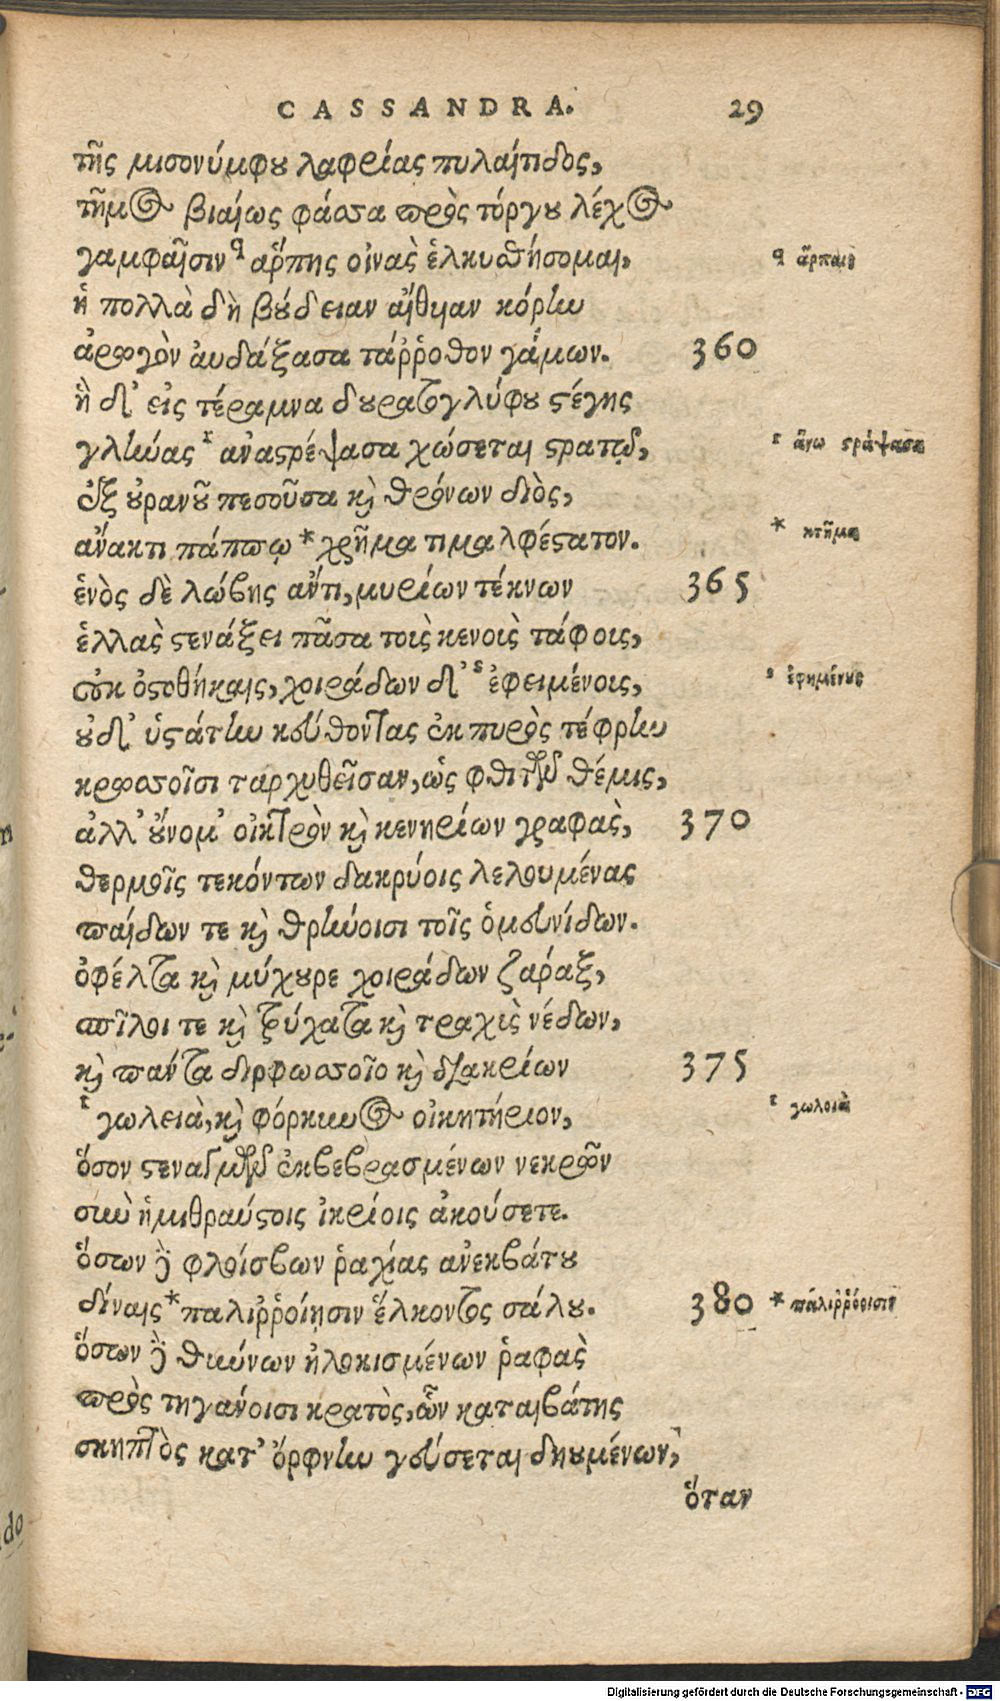 CASSANDRA. 29
τῆς μισονύμφου λαφρίας πυλαίτιδος,
τῆμος βιαίως φάσσα πρὸς τόργου λέχος
γαμφαῖσιν q ἅρπης οἰνὰς ἑλκυσθήσομαι, q ἅρπαις
ἡ πολλὰ δὴ βούδειαν αἴθυιαν κόρην
ἀρωγὸν αὐδάξασα τάῤῥοθον γάμων. 360
ἣ δ' εἰς τέραμνα δουρατογλύφου στέγης
γλήνας r ἀναστρέψασα χώσεται στρατῷ, r ἄνω στρέψασα
ἐξ οὐρανοῦ πεσοῦσα καὶ θρόνων διὸς,
ἄνακτι πάππῳ * χρῆμα τιμαλφέστατον. * κτῆμα
ἑνὸς δὲ λώβης ἀντὶ, μυρίων τέκνων 365
ἑλλὰς στενάξει πᾶσα τοὺς κενοὺς τάφους,
οὐκ ὀστοθήκαις, χοιράδων δ' s ἐφειμένοις, s ἐφημένους
οὐδ' ὑστάτην κεύθοντας ἐκ πυρὸς τέφρην
κρωσσοῖσι ταρχυθεῖσαν, ὡς φθιτῶν θέμις,
ἀλλ' οὔνομ' οἰκτρὸν καὶ κενηρίων γραφὰς, 370
θερμοῖς τεκόντων δακρύοις λελουμένας
παίδων τε καὶ θρήνοισι τοῖς ὁμευνίδων.
ὀφέλτα καὶ μύχουρε χοιράδων ζαράξ,
σπῖλοι τε καὶ τρύχατα καὶ τραχὺς νέδων,
καὶ πάντα διρφωσσοῖο καὶ διακρίων 375
t γωλειὰ, καὶ φόρκυνος οἰκητήριον, t γωλοιὰ
ὅσον στεναγμῶν ἐκβεβρασμένων νεκρῶν
σὺν ἡμιθραύστοις ἰκρίοις ἀκούσετε.
ὅσων δὲ φλοίσβων ῥαχίας ἀνεκβάτου
δίναις * παλιῤῥοίῃσιν ἕλκοντος σάλου. 380 * παλιῤῥόοισι
ὅσων δὲ θύννων ἠλοκισμένων ῥαφὰς
πρὸς τηγάνοισι κρατὸς, ὧν καταιβάτης
σκηπτὸς κατ' ὄρφνην γεύσεται δῃουμένων,
ὅταν
Digitalisierung gefördert durch die Deutsche Forschungsgemeinschaft - DFG